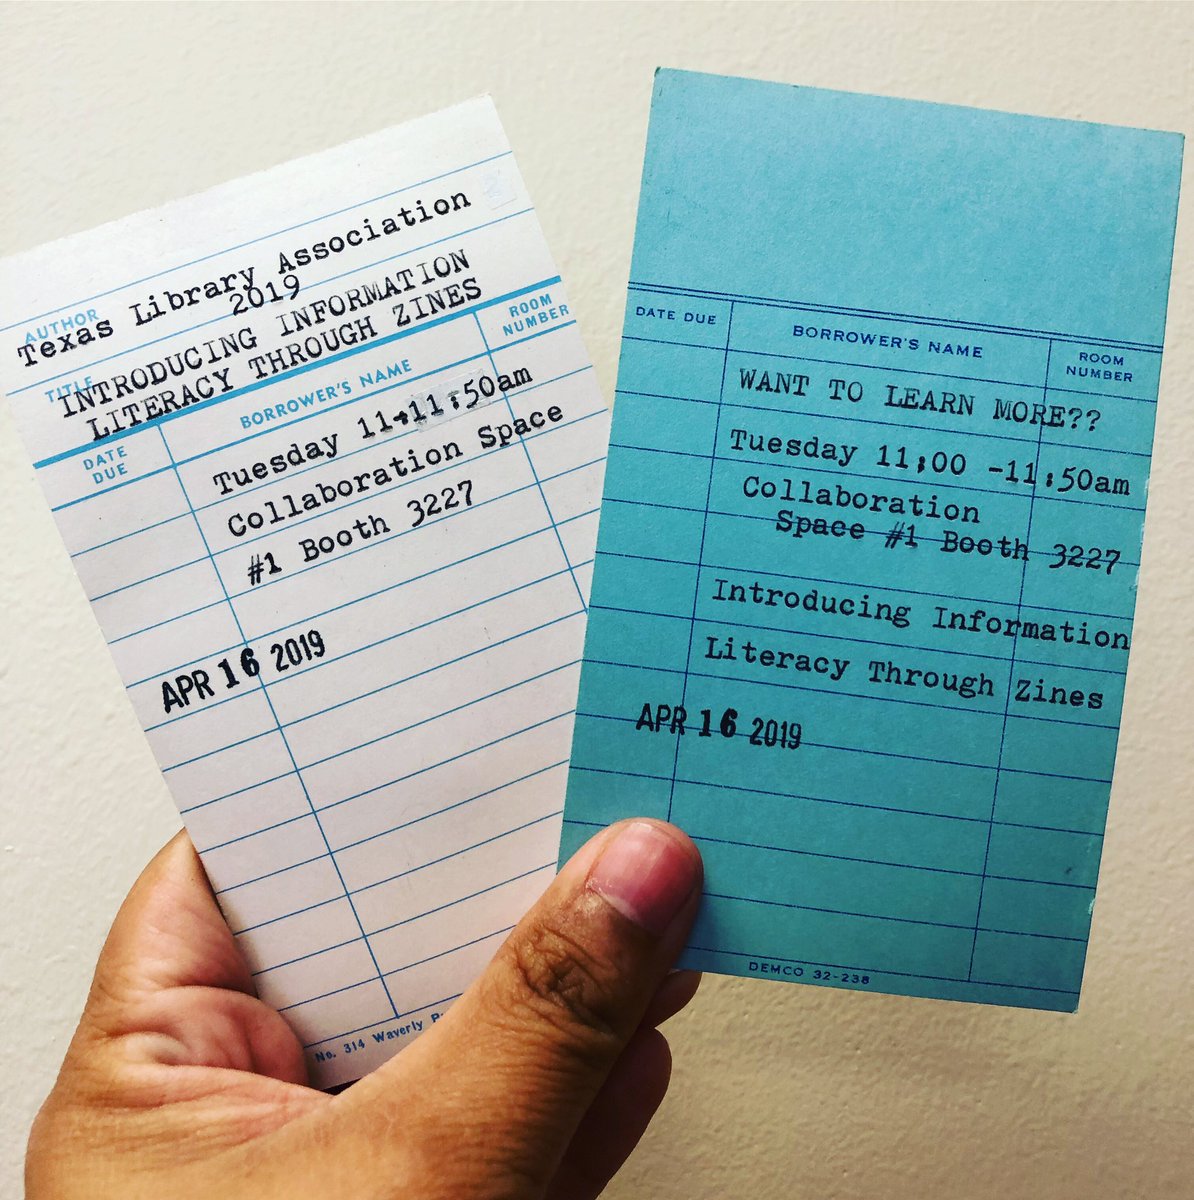 Texas Library Association
2019
AUTHOR
INTRODUCING INFORMATION
TITLE
LITERACY THROUGH ZINES
DATE DUE
BORROWER'S NAME
ROOM NUMBER
Tuesday 11-11:50am
Collaboration Space
#1 Booth 3227
APR 16 2019
No. 314 Waverly
DATE DUE
BORROWER'S NAME
ROOM NUMBER
WANT TO LEARN MORE??
Tuesday 11:00 -11:50am
Collaboration
Space #1 Booth 3227
Introducing Information
Literacy Through Zines
APR 16 2019
DEMCO 32-238